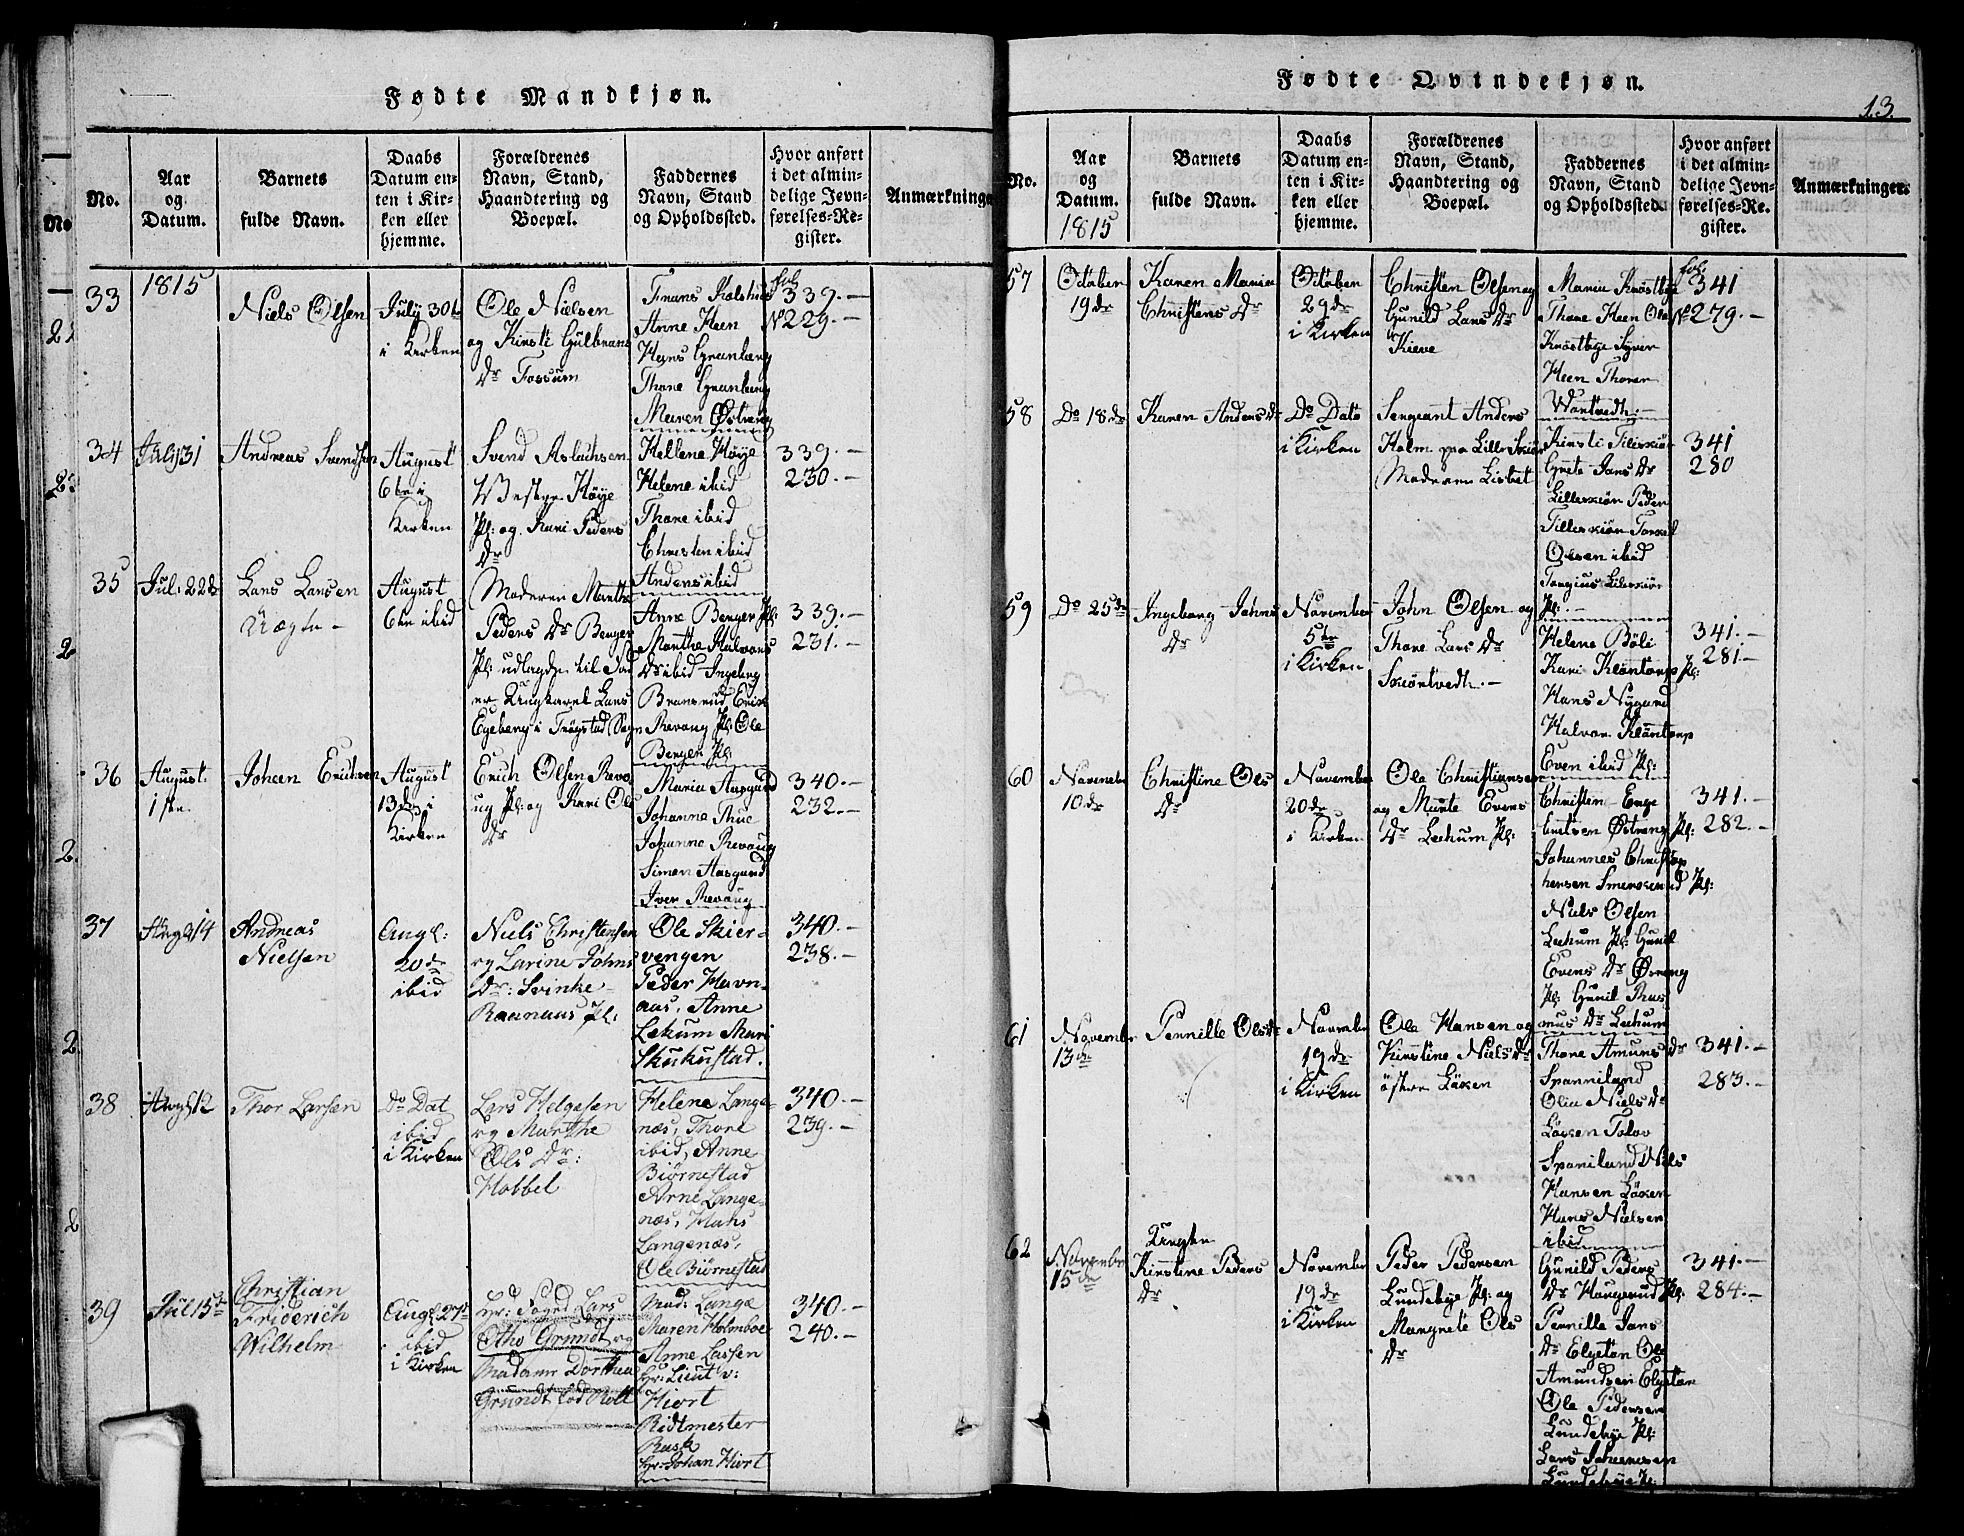 Fødte Mandkjøn.
No.
Aar
og
Datum.
Barnets
fulde Navn.
Daabs
Datum en-
ten i Kir-
ken eller
hjemme.
Forældrenes
Navn, Stand,
Haandtering og
Boepæl.
Faddernes
Navn, Stand
og Opholdssted.
Hvor anført
i det almin-
delige Jevn-
førelses-Re-
gister.
Anmærkninge
33
1815
Niels Olsen
July 30te
i Kirken
Ole Nielsen
og Kirsti Gulbrans
Dr Fossum
Anne Heen
Hans Granberg
Thore Granberg
Maren Østreng
fol
339.-
No 229.-
34
July 31
Andreas Svendsen
August
6te i
Kirken
Svend Aslachsen
Vestre Høye
Pl: og Kari Peders
Dr
Hellene Høye
Helene ibid
Thore ibid
Christen ibid
Anders ibid
339.-
230.-
35
Jul: 22de
Lars Larsen
Uægte -
August
6te ibid
Moderen Marthe
Peders Dr Berger
Pl: udlagde til Fad
er Ungkarl Lars
Egeberg i Trøgstad Sogn
Anne Berger Pl:
Marthe Halvors
Dr ibid Ingeborg
Bransrud Erik
Revoug Pl: Ole
Berger Pl:
339.-
231.-
36
August
1ste
Johan Erichsen
August
13de i
Kirken
Erich Olsen Revo
ug Pl: og Kari Ols
Dr
Maria Aasgurd
Johanne Thue
Johanne Revoug
Simen Aasgurd
Iver Revoug
340.-
232.-
37
Aug: 14
Andreas
Nielsen
Aug:
20de
ibid
Niels Christensen
og Larine Johns
Dr: Svinke-
Raanaas Pl:
Ole Skier-
vengen
Peder Havn-
aas, Anne
Lekum Mari
Skukustad.
340.-
238.-
38
Aug: 12
Thor Larsen
Do Dat
ibid
i Kirken
Lars Helgesen
og Marthe
Ols Dr:
Hobbel
Helene Lange-
næs, Thore
ibid, Anne
Biørnestad
Arne Lange-
næs, Hans
Langenæs,
Ole Biørnestad
340.-
239.-
39
Jul 15de
Christian
Friderich
Wilhelm
Aug: 27de
ibid
i Kirken
Hr: Sogned Lars
Otho Grundt og
Madame Dorthea
Grundt fød Rott
Mad: Lange
Maren Holmboe
Anne Lassen
Hr: Lieut v:
Hiort
Ridtmester
Rask
Hr: Johan Hiort
340.-
240.-
Fødte Qvindekjøn.
13.
No.
Aar
og
Datum.
1815
Barnets
fulde Navn.
Daabs
Datum en-
ten i Kir-
ken eller
hjemme.
Forældrenes
Navn, Stand,
Haandtering og
Boepæl.
Faddernes
Navn, Stand
og Opholdssted.
Hvor anført
i det almin-
delige Jevn-
førelses-Re-
gister.
Anmærkninger.
57
October
19de
Karen Maria
Christens Dr
October
29de
i Kirken
Christen Olsen og
Gunild Lars Dr
Kieve
Maria Knøstbye
Thore Heen Ole
Knøstbye Syver
Heen Thorer
Wontvedt.-
fol:
341
No 279.-
58
Do 18de
Karen Anders Dr
Do Dato
i Kirken
Sergeant Anders
Holm paa Lille Skiør
Moderen Lisbet
Kirsti Lilleskiør
Grete Jans Dr
Lilleskiør Peder
Lilleskiør Torkel
Olsen ibid
Torgius Lilleskiør
Pl:.-
341
280
59
Do 25de
Ingeborg Johns
Dr
November
5te
i Kirken
John Olsen og
Thore Lars Dr
Skiøntvedt.-
Helene Böli
Kari Klöntorp Pl:
Hans Nygard
Halvor Klöntorp
Even ibid Pl:
341.-
281.-
60
November
10de
Christine Ols
Dr
November
20de
i Kirken
Ole Christiansen
og Marte Evens
Dr Leckum Pl:
Christen Enge
Østreng Pl:
Johannes Christop
hersen Smerkerud Pl:
Niels Olsen
Leckum Pl: Gunil
Evens Dr Ørreng
Pl: Gunil Ras
mus Dr Leckum
341.-
282.-
61
November
13de
Pernille Ols Dr
November
19de
i Kirken
Ole Hansen og
Kirstine Niels Dr
østre Löken
Thore Amuns Dr
Spanneland
Olia Niels Dr
Löken Tolov
Spaniland Niels
Hansen Löken
Hans Nielsen
ibid
341.-
283.-
62
November
15de
Uægte
Kirstine Peders
Dr
November
19de
i Kirken
Peder Pedersen
Lundebye Pl: og
Margrete Ols
Dr
Gunild Peders
Dr Haugerud Pl:
Pernille Jans
Dr Elgetun Ole
Amundsen Elgetun
Ole Pedersen
Lundebye Pl:
Lars Johannesen
Lundebye Pl:
341.-
284.-